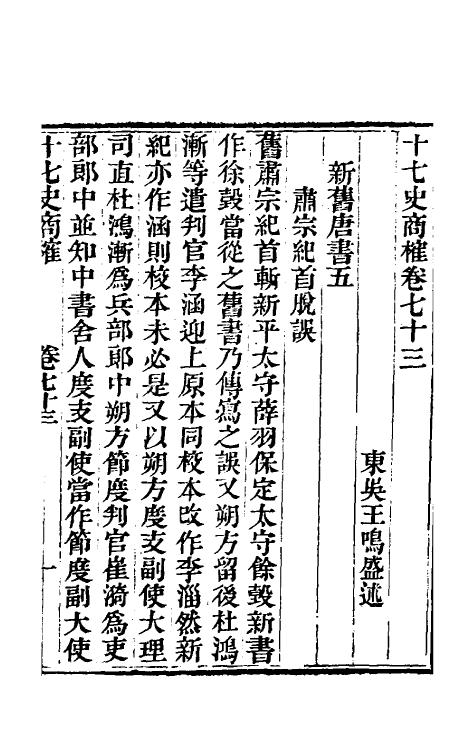 十七史商榷卷七十三
東吳王鳴盛述
新舊唐書五
肅宗紀首脫誤
舊肅宗紀首斬新平太守薛羽保定太守餘㲄新書
作徐㲄當從之舊書乃傳寫之誤又朔方留後杜鴻
漸等遣判官李涵迎上原本同校本改作李淄然新
紀亦作涵則校本未必是又以朔方度支副使大理
司直杜鴻漸爲兵部郎中朔方節度判官崔漪爲吏
部郎中並知中書舍人度支副使當作節度副大使
十七史商榷
卷七十三
一